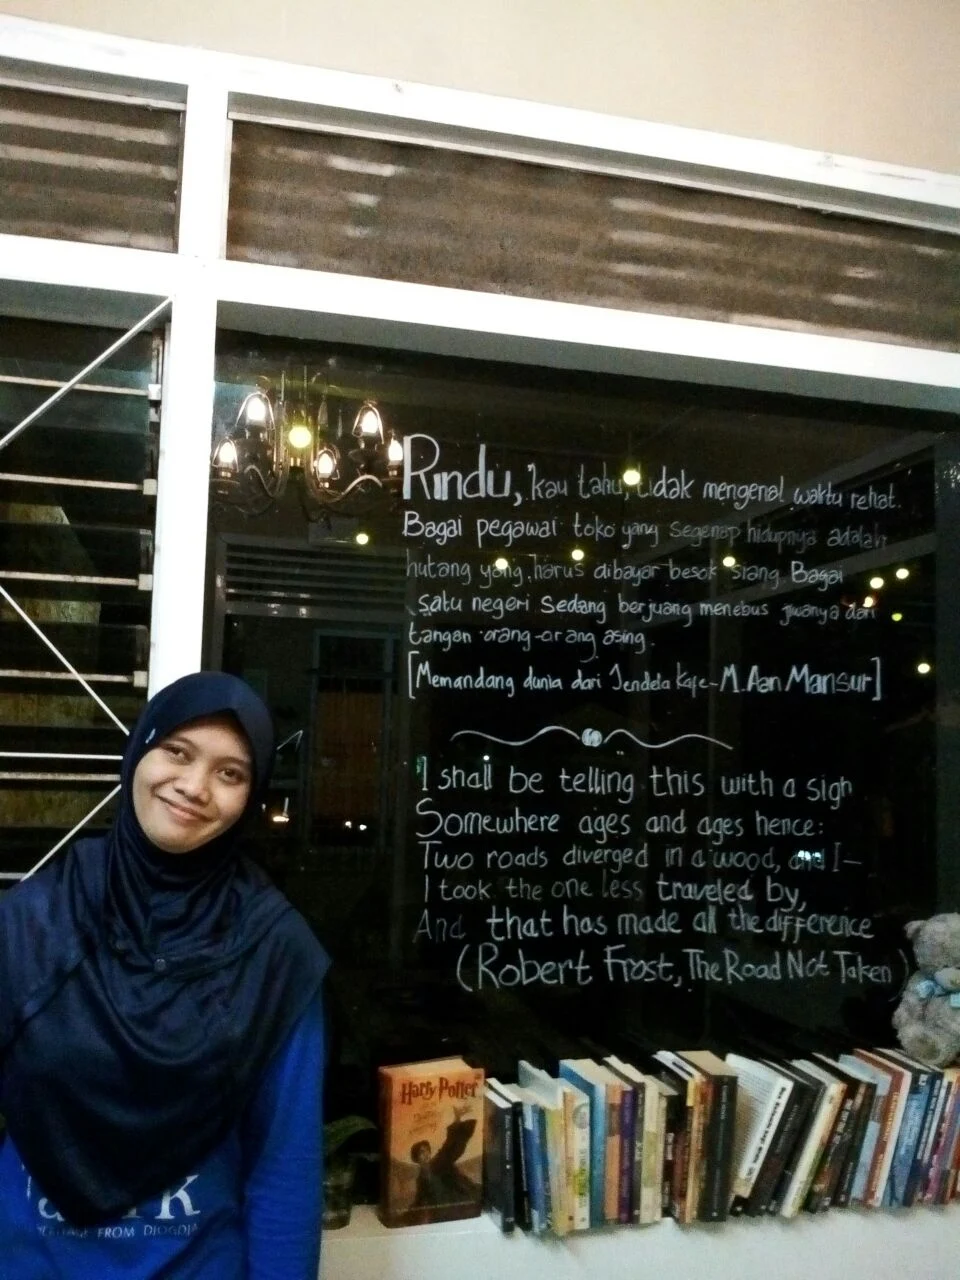 Rindu, kau tahu, tidak mengenal waktu rehat.
Bagai pegawai toko yang segenap hidupnya adalah
hutang yang harus dibayar besok siang. Bagai
satu negeri sedang berjuang menebus jiwanya dari
tangan orang-orang asing.
[Memandang dunia dari Jendela Kafe - M. Aan Mansur]
I shall be telling this with a sigh
Somewhere ages and ages hence:
Two roads diverged in a wood, and I—
I took the one less traveled by,
And that has made all the difference
(Robert Frost, The Road Not Taken)
Harry Potter
FROM DJOGDJA